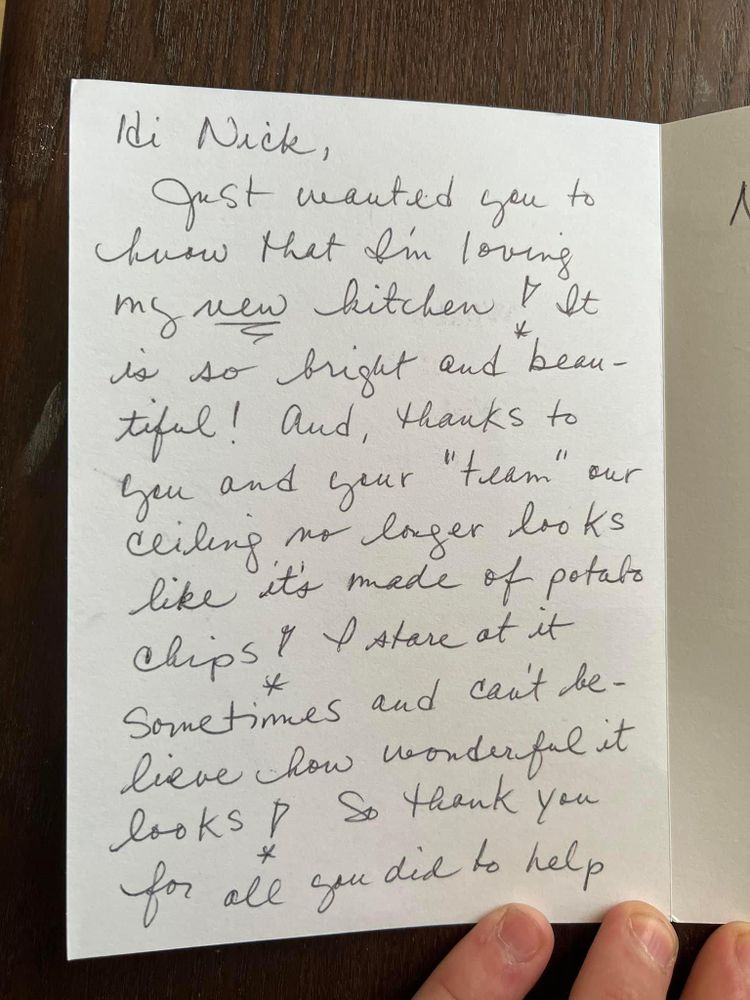 Hi Nick,
Just wanted you to
know that I'm loving
my new kitchen! It
is so bright and beau-
tiful! And, thanks to
you and your "team" our
ceiling no longer looks
like it's made of potato
chips! I stare at it
sometimes and can't be-
lieve how wonderful it
looks! So thank you
for all you did to help